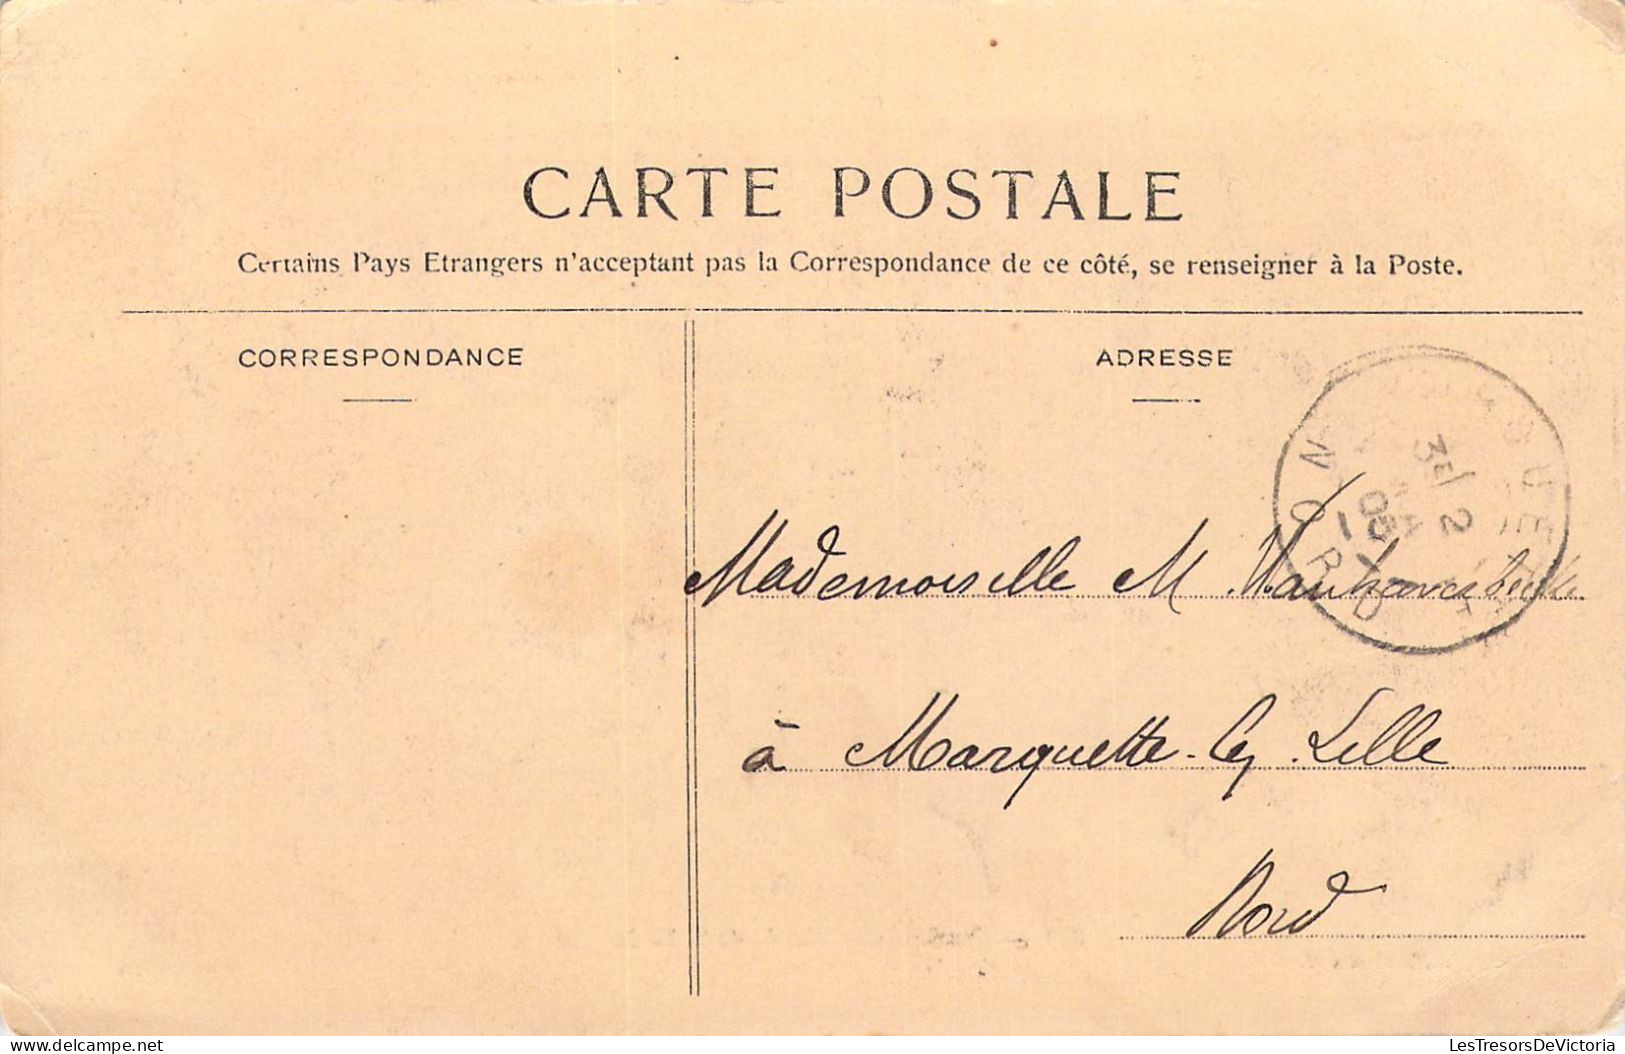 CARTE POSTALE
Certains Pays Etrangers n'acceptant pas la Correspondance de ce côté, se renseigner à la Poste.
CORRESPONDANCE
ADRESSE
NORD
Mademoiselle M.
à Marquette-lez Lille
Nord
delcampe.net
LesTresorsDeVictoria